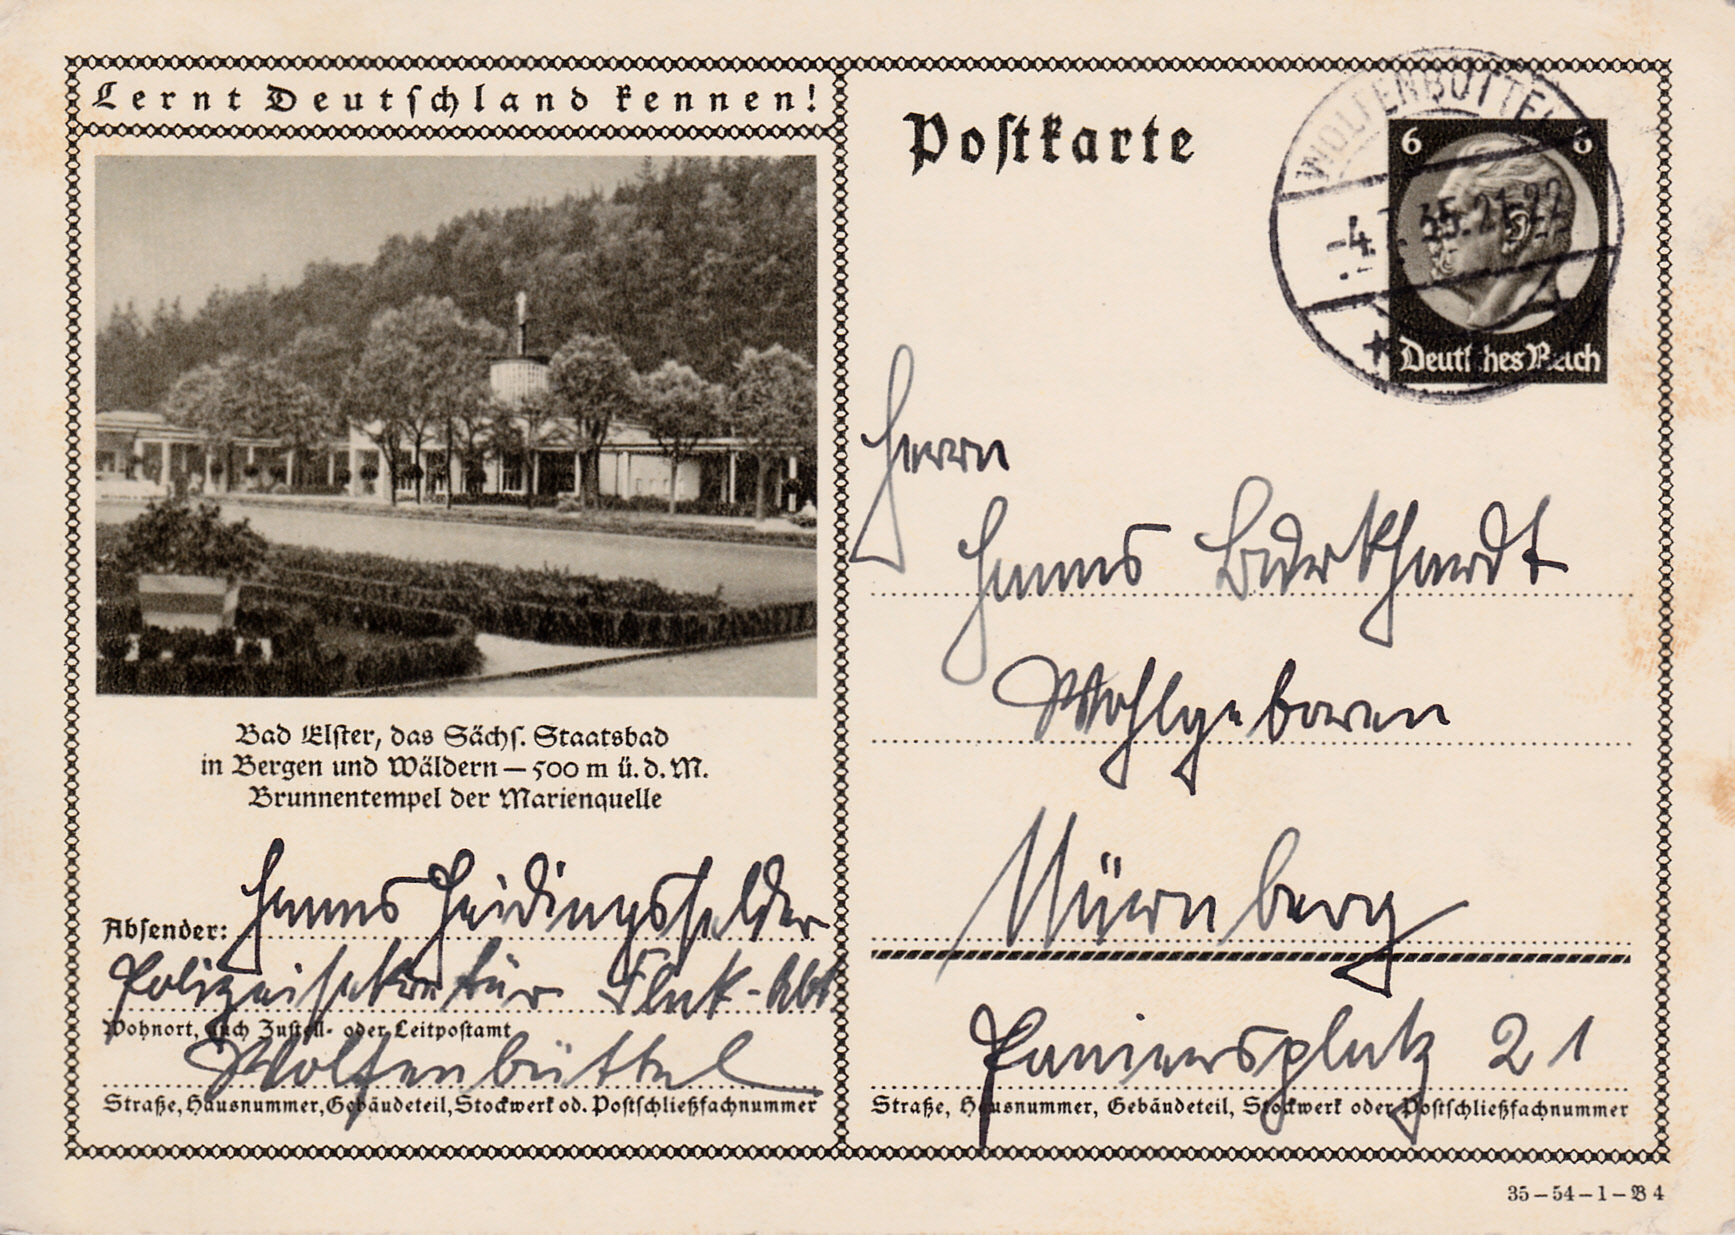 Lernt Deutschland kennen!
Postkarte
WOLFENBÜTTEL
-4. 35.21-22
6 6
Deutsches Reich
Bad Elster, das Sächs. Staatsbad
in Bergen und Wäldern – 500 m ü. d. M.
Brunnentempel der Marienquelle
Absender: Hanns Heidingsfelder
Polizeisekretär Flak-Abt.
Wohnort, auch Zustell- oder Leitpostamt
Wolfenbüttel
Straße, Hausnummer, Gebäudeteil, Stockwerk od. Postschließfachnummer
Herrn
Hanns Burkhardt
Wohlgeboren
Nürnberg
Paniersplatz 21
Straße, Hausnummer, Gebäudeteil, Stockwerk oder Postschließfachnummer
35–54–1–B 4